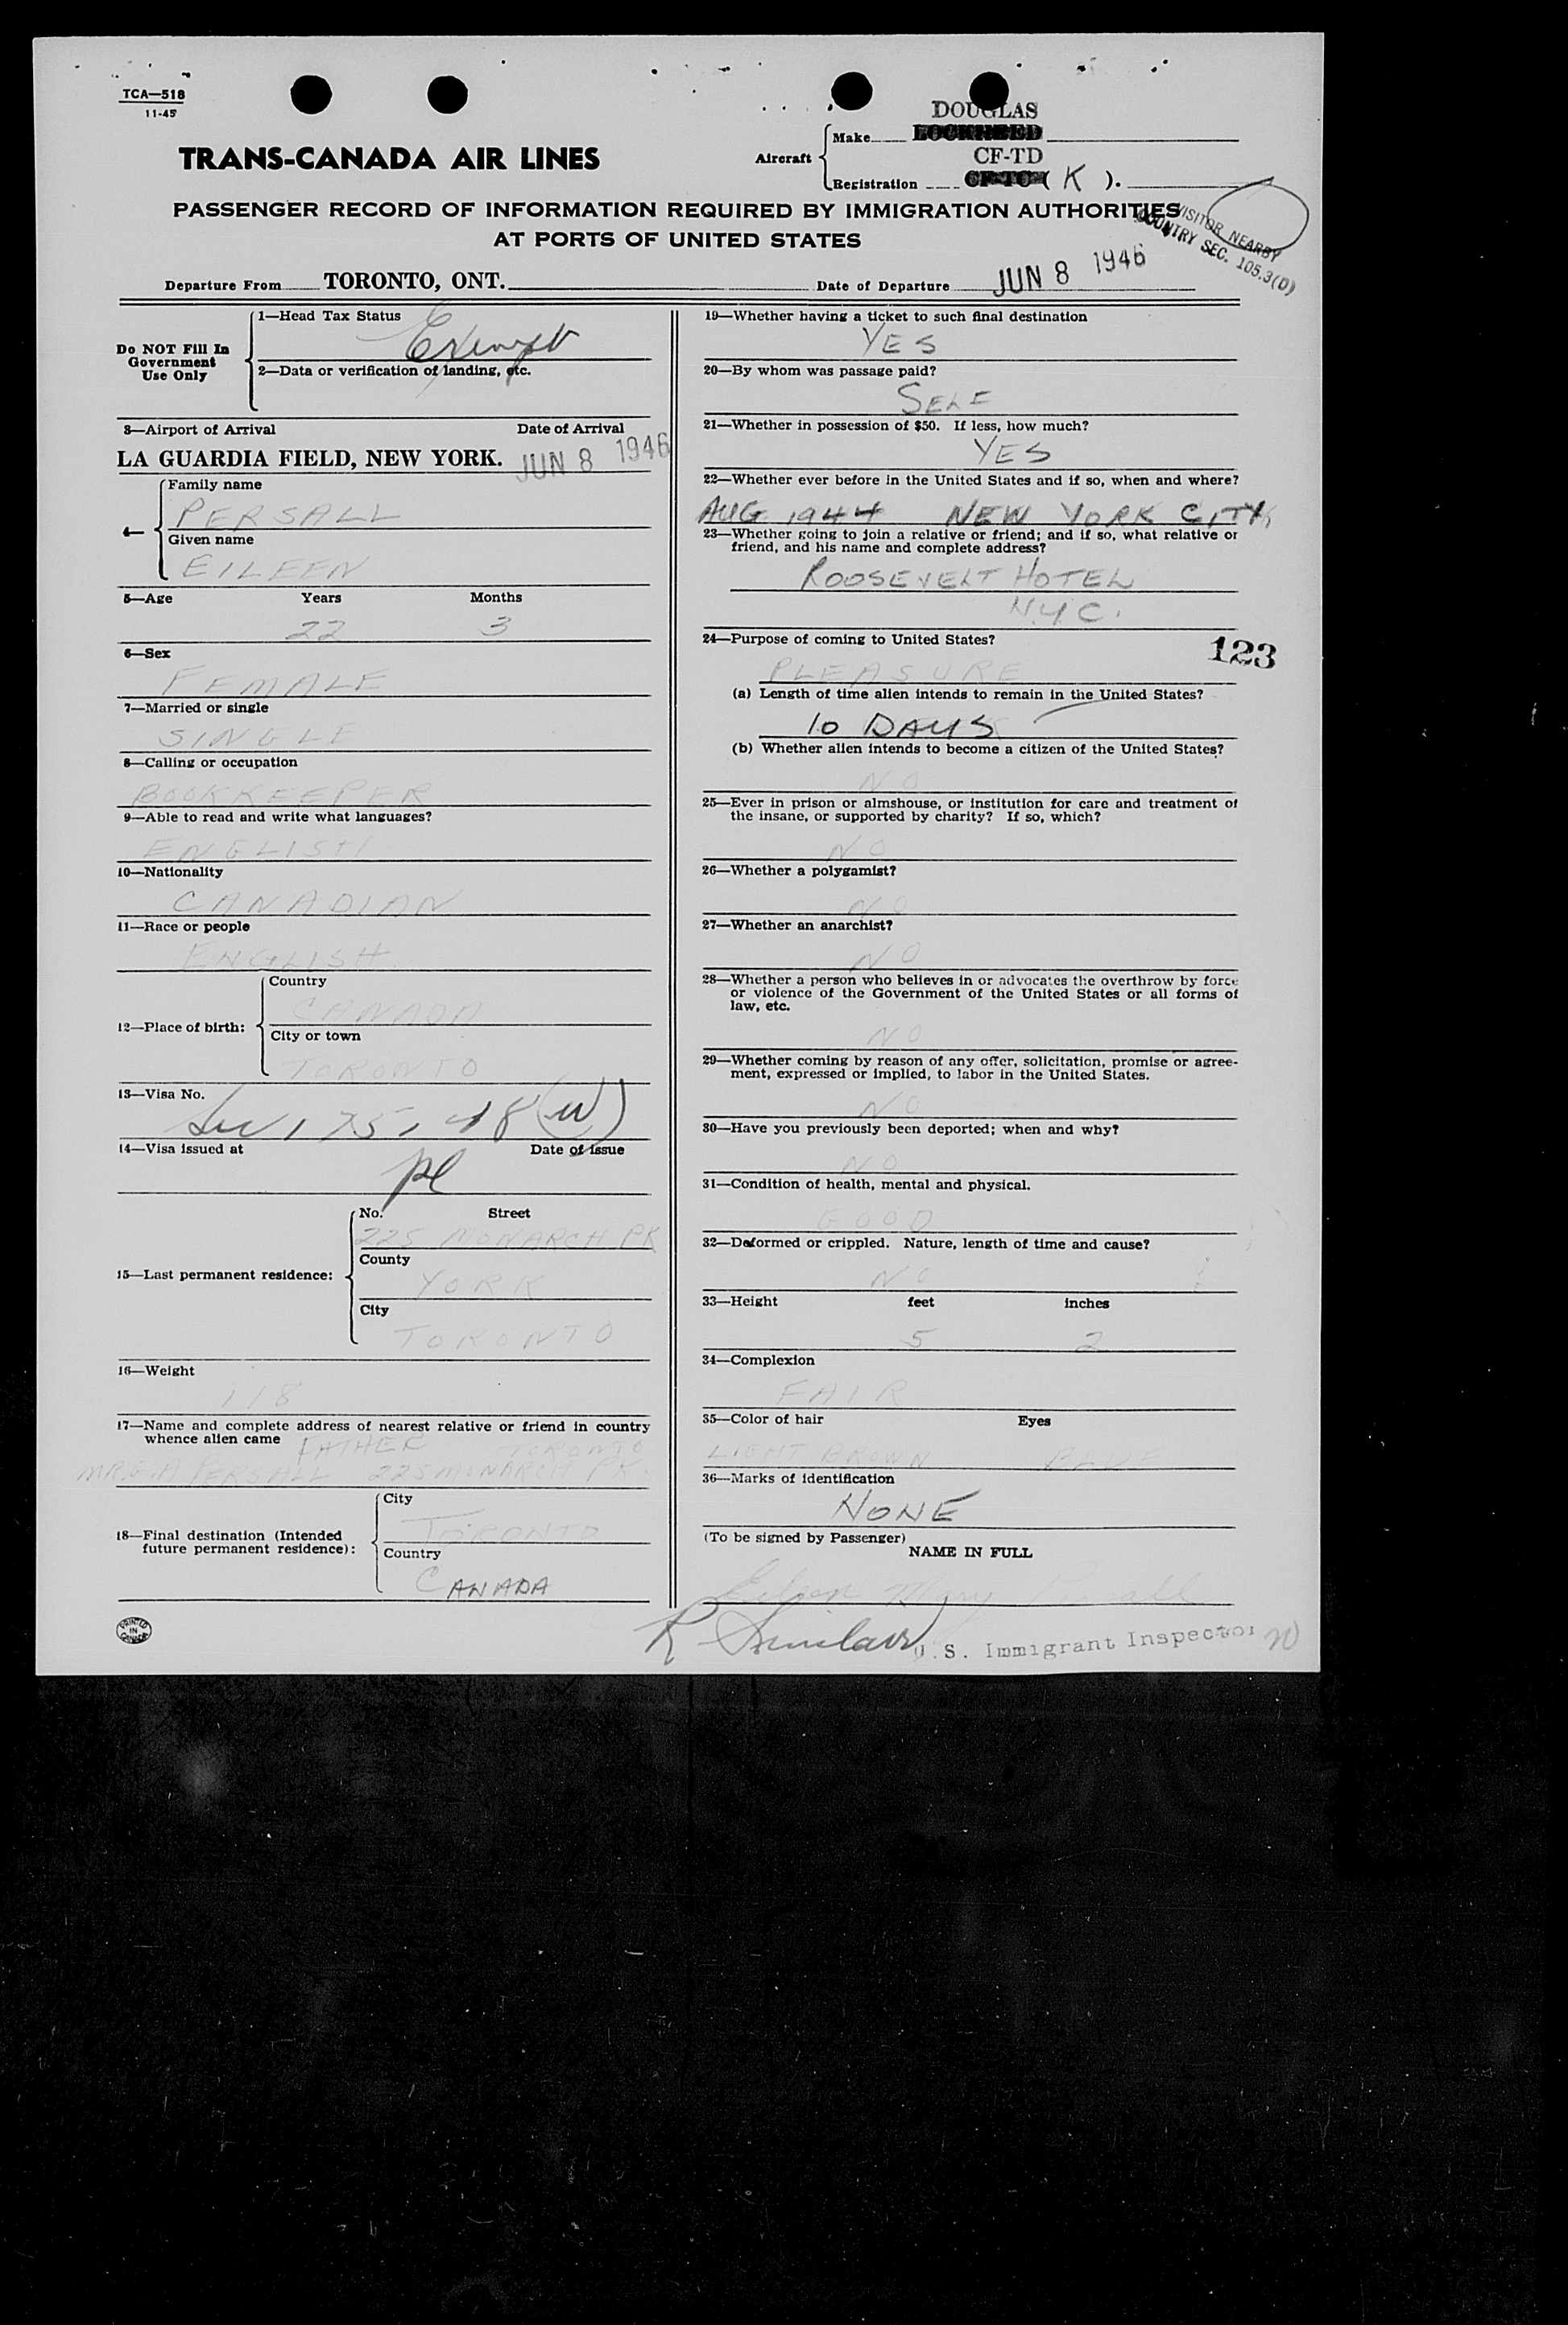 TCA—518
11-45
TRANS-CANADA AIR LINES
Aircraft
Make
DOUGLAS
LOCKHEED
Registration
CF-TD
CF-TC ( K ).
PASSENGER RECORD OF INFORMATION REQUIRED BY IMMIGRATION AUTHORITIES
AT PORTS OF UNITED STATES
VISITOR NEARBY
COUNTRY SEC. 105.3(D)
Departure From TORONTO, ONT.
Date of Departure JUN 8 1946
Do NOT Fill In
Government
Use Only
1—Head Tax Status
Exempt
2—Data or verification of landing, etc.
3—Airport of Arrival Date of Arrival
LA GUARDIA FIELD, NEW YORK. JUN 8 1946
4—
Family name
PERSALL
Given name
EILEEN
5—Age Years Months
22 3
6—Sex
FEMALE
7—Married or single
SINGLE
8—Calling or occupation
BOOKKEEPER
9—Able to read and write what languages?
ENGLISH
10—Nationality
CANADIAN
11—Race or people
ENGLISH
12—Place of birth:
Country
CANADA
City or town
TORONTO
13—Visa No.
175, 48 (W)
14—Visa issued at Date of issue
15—Last permanent residence:
No. Street
225 MONARCH PK
County
YORK
City
TORONTO
16—Weight
118
17—Name and complete address of nearest relative or friend in country
whence alien came FATHER TORONTO
PERSALL 225 MONARCH PK.
18—Final destination (Intended
future permanent residence):
City
TORONTO
Country
CANADA
PRINTED
IN
CANADA
19—Whether having a ticket to such final destination
YES
20—By whom was passage paid?
SELF
21—Whether in possession of $50. If less, how much?
YES
22—Whether ever before in the United States and if so, when and where?
AUG 1944 NEW YORK CITY
23—Whether going to join a relative or friend; and if so, what relative or
friend, and his name and complete address?
ROOSEVELT HOTEL
N.Y.C.
24—Purpose of coming to United States?
123
PLEASURE
(a) Length of time alien intends to remain in the United States?
10 DAYS
(b) Whether alien intends to become a citizen of the United States?
NO
25—Ever in prison or almshouse, or institution for care and treatment of
the insane, or supported by charity? If so, which?
NO
26—Whether a polygamist?
NO
27—Whether an anarchist?
NO
28—Whether a person who believes in or advocates the overthrow by force
or violence of the Government of the United States or all forms of
law, etc.
NO
29—Whether coming by reason of any offer, solicitation, promise or agree-
ment, expressed or implied, to labor in the United States.
NO
30—Have you previously been deported; when and why?
NO
31—Condition of health, mental and physical.
GOOD
32—Deformed or crippled. Nature, length of time and cause?
NO
33—Height feet inches
5 2
34—Complexion
FAIR
35—Color of hair Eyes
LIGHT BROWN BLUE
36—Marks of identification
NONE
(To be signed by Passenger)
NAME IN FULL
Eileen Mary Persall
R Sinclair U.S. Immigrant Inspector 20